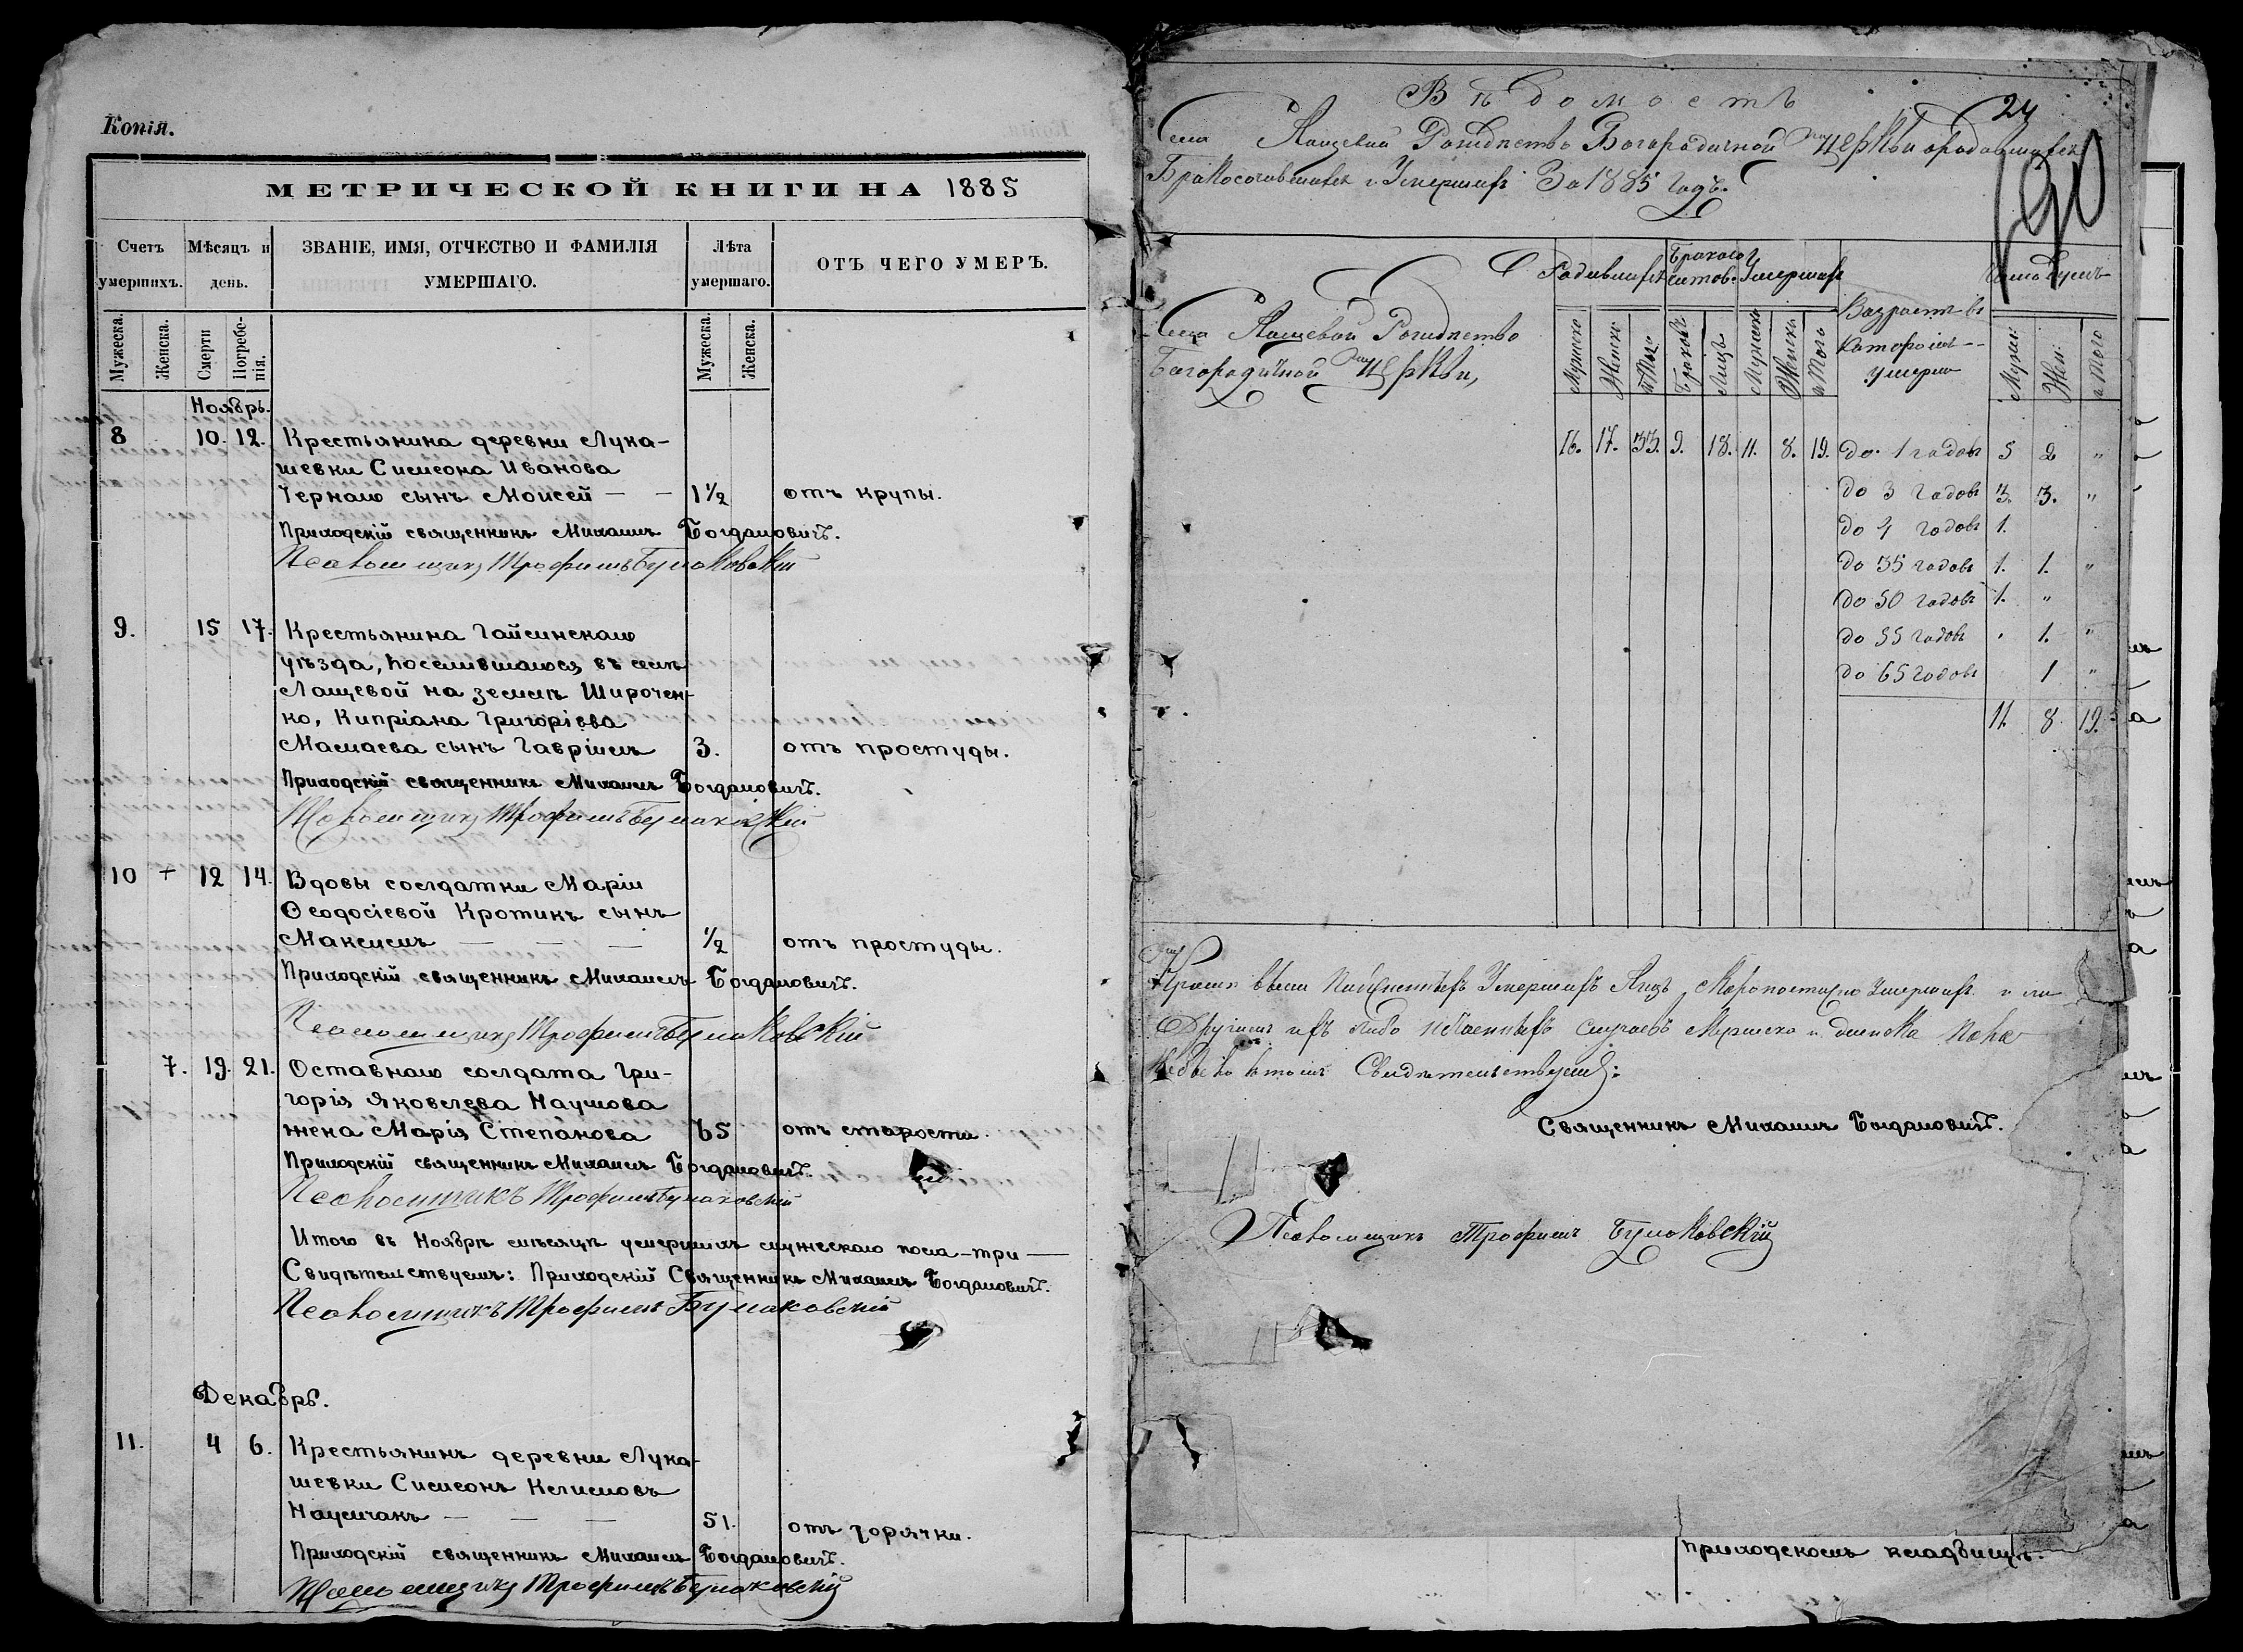 Копія.
МЕТРИЧЕСКОЙ КНИГИ НА 1885
Счетъ умершихъ.
Мѣсяцъ и день.
ЗВАНІЕ, ИМЯ, ОТЧЕСТВО И ФАМИЛІЯ УМЕРШАГО.
Лѣта умершаго.
ОТЪ ЧЕГО УМЕРЪ.
Мужеска. Женска. Смерти Погребенія. Мужеска. Женска.
Ноябрь.
8 10. 12. Крестьянина деревни Лука-
шевки Симеона Иванова
Чернаго сынъ Моисей — — 1 1/2 отъ крупы.
Приходскій священникъ Михаилъ Богдановичъ.
Псаломщикъ Трофимъ
9. 15 17. Крестьянина Гайсинскаго
уѣзда, поселившагося въ селѣ
Лащевой на землѣ Широчен-
ко, Кипріана Григоріева
Мамаева сынъ Гавріилъ 3. отъ простуды.
Приходскій священникъ Михаилъ Богдановичъ.
Псаломщикъ Трофимъ
10 + 12 14. Вдовы солдатки Маріи
Ѳеодосіевой Кротикъ сынъ
Максимъ — — — 1/2 отъ простуды.
Приходскій священникъ Михаилъ Богдановичъ.
Псаломщикъ Трофимъ
7. 19. 21. Оставнаго солдата Гри-
горія Яковлева Наумова
жена Марія Степанова 65 отъ старости.
Приходскій священникъ Михаилъ Богдановичъ.
Псаломщикъ Трофимъ
Итого въ Ноябрѣ мѣсяцѣ умершихъ мужескаго пола - три —
Свидѣтельствуемъ: Приходскій Священникъ Михаилъ Богдановичъ.
Псаломщикъ Трофимъ
Декабрь.
11. 4 6. Крестьянинъ деревни Лука-
шевки Симеонъ Климовъ
Наумчакъ — — — 51. отъ горячки.
Приходскій священникъ Михаилъ Богдановичъ.
Псаломщикъ Трофимъ
24
Вѣдомость
Села Лащевой Рождество Богородичной церкви о родившихся
Бракосочавшихся и Умершихъ За 1885 Годъ.
Родившихся Умершихъ
Возрастъ въ
которомъ
умерли
Села Лащевой Рождество
Богородичной церкви,
Мужеск Женск итого Браковъ Лицъ Мужеск Женск итого Мужеск. Жен. итого
16. 17. 33. 9. 18. 11. 8. 19. до 1 годов 5 2 "
до 3 годовъ 3. 3. "
до 4 годовъ 1.
до 35 годовъ 1. 1. "
до 50 годовъ 1. "
до 55 годовъ 1. "
до 65 годовъ 1 "
11. 8. 19.
Умершихъ Лицъ, скоропостижно умершихъ или
другихъ случаевъ
въ томъ Свидѣтельствуемъ:
Священникъ Михаилъ Богдановичъ.
Псаломщикъ Трофимъ
приходскомъ кладбищѣ.